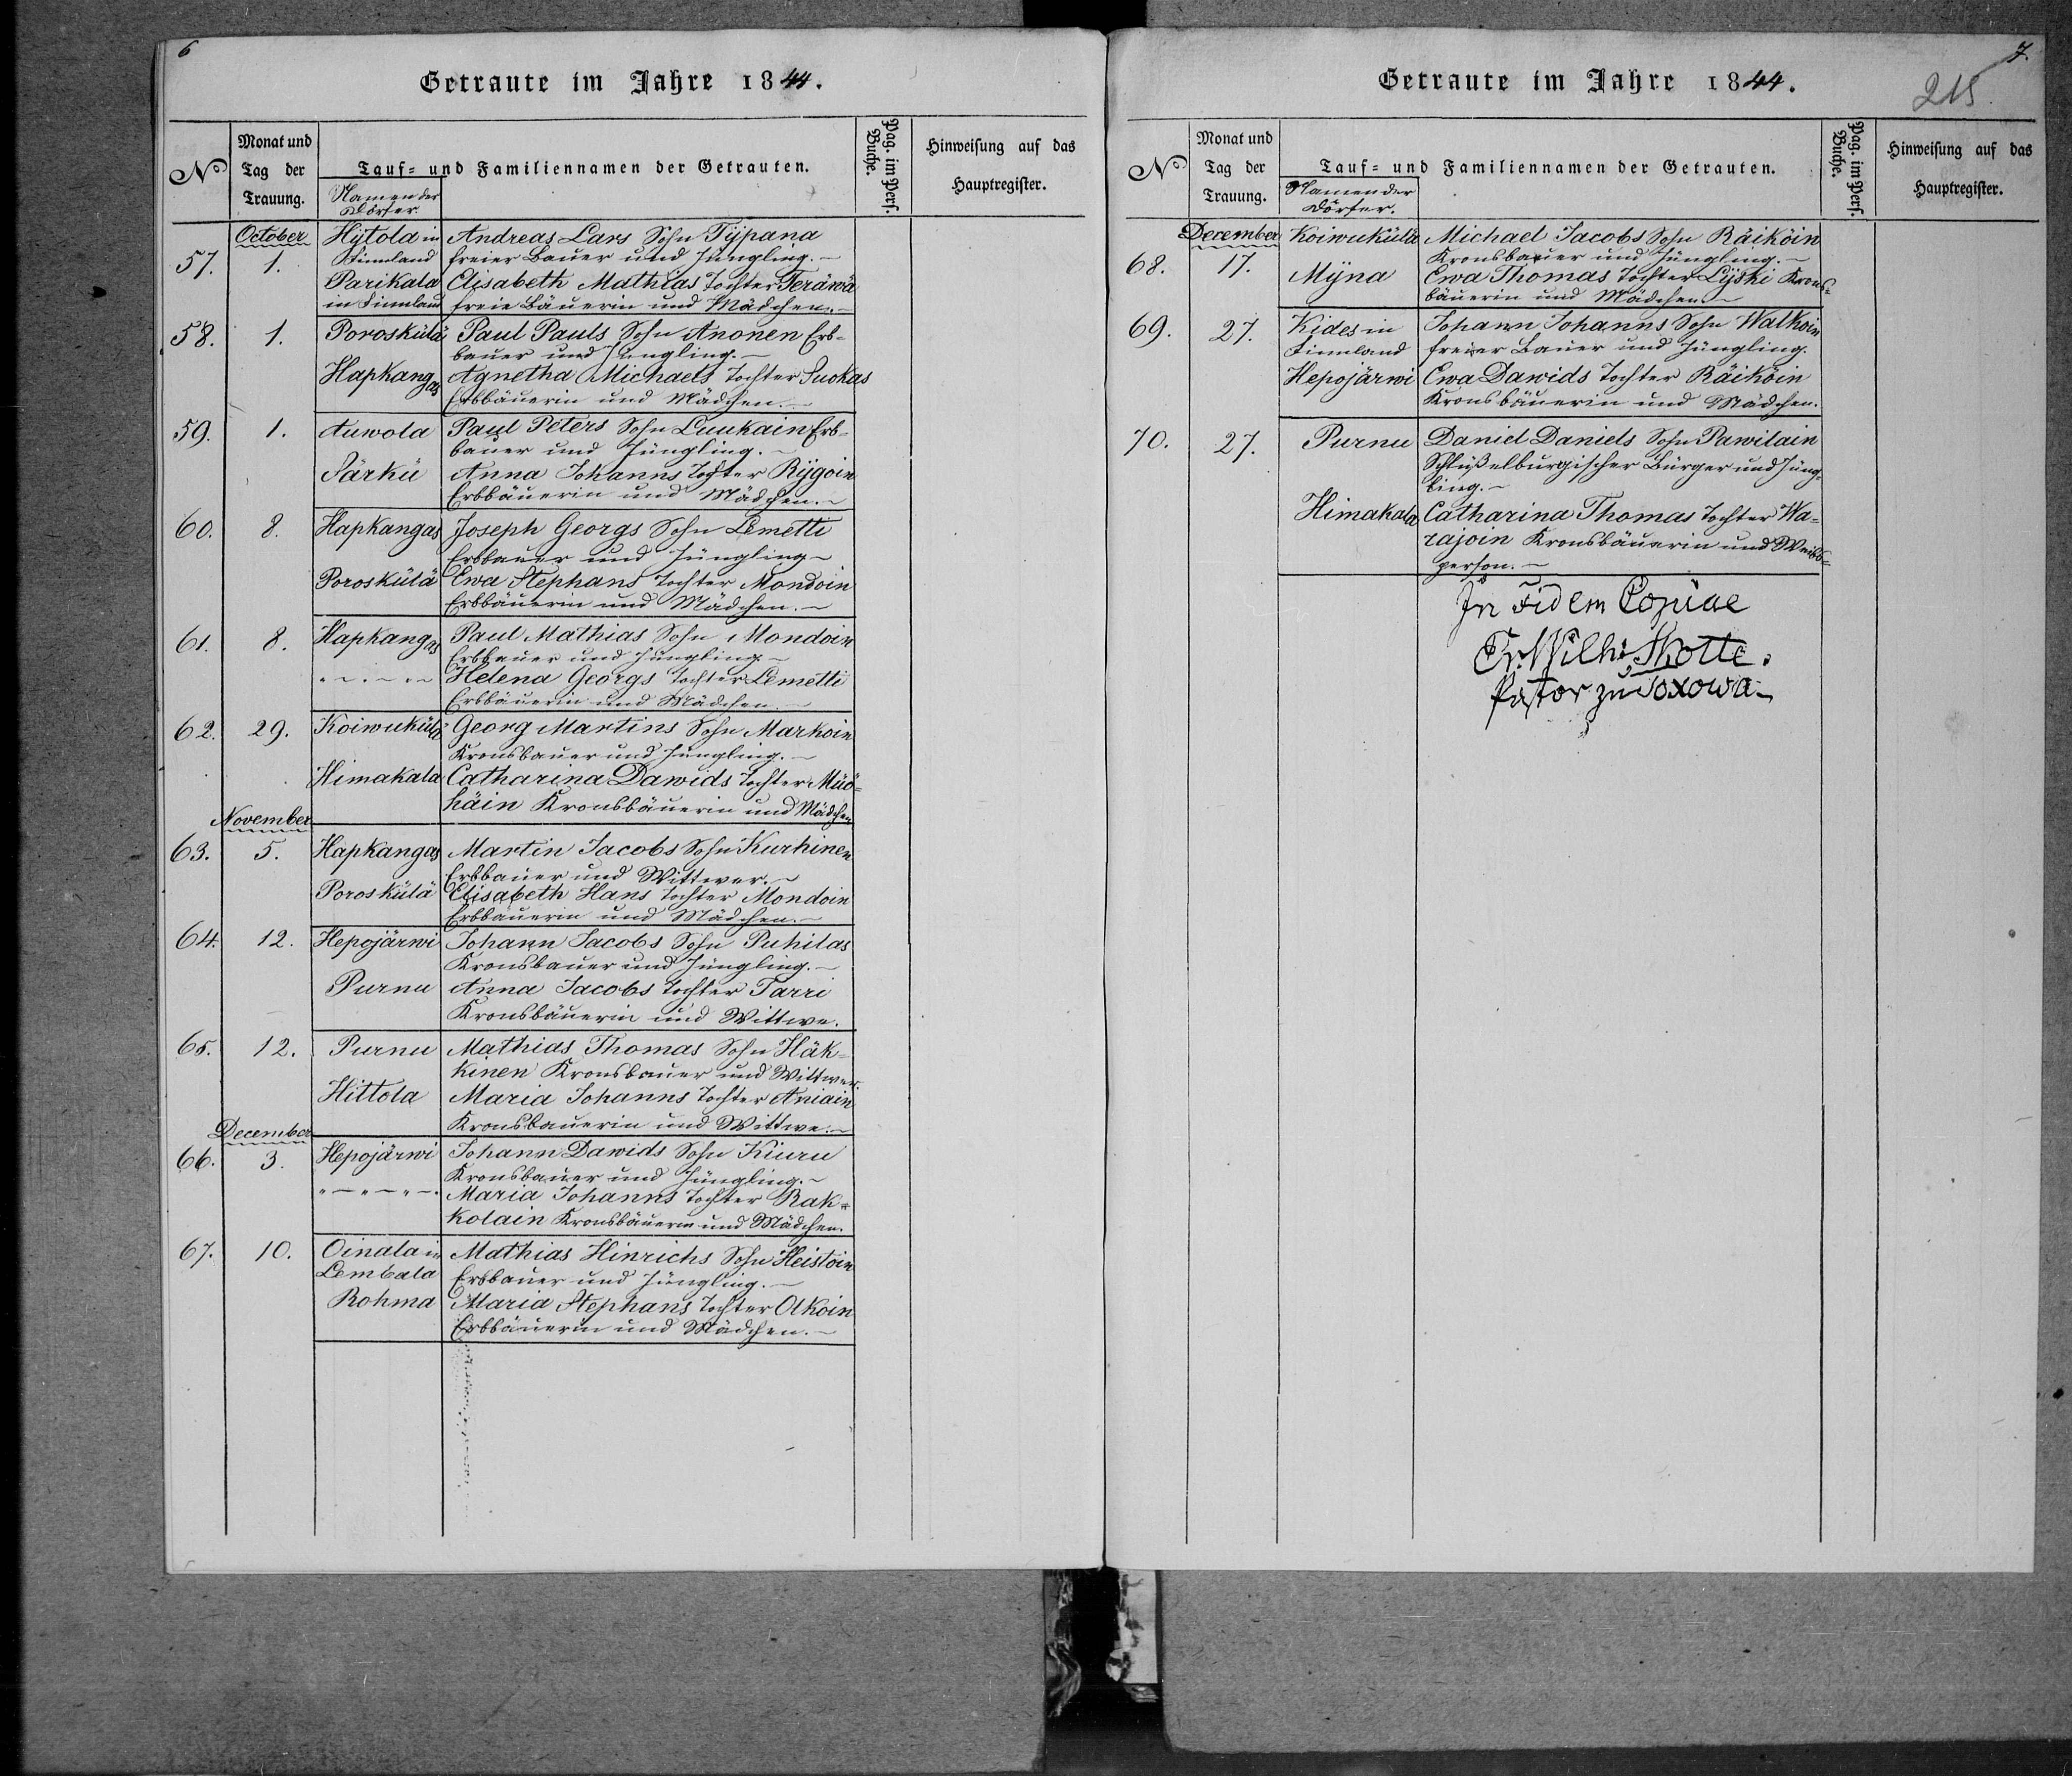 6
Getraute im Jahre 1844.
N
Monat und
Tag der
Trauung.
Tauf- und Familiennamen der Getrauten.
Namen der
Dörfer.
Pag. im Pers.
Buche.
Hinweisung auf das
Hauptregister.
October Hÿtola in Andreas Lars Sohn Tÿpana
57. 1. Finnland freier Bauer und Jüngling.
Parikala Elisabeth Mathias Tochter Teräwä
in Finnland freie Bäuerin und Mädchen.
58. 1. Poroskülä Paul Pauls Sohn Anonen Erb-
bauer und Jüngling.
Hapkangas Agnetha Michaels Tochter Suokas
Erbbäuerin und Mädchen.
59. 1. Auwola Paul Peters Sohn Luukain Erb-
bauer und Jüngling.
Särkü Anna Johanns Tochter Rÿgoin
Erbbäuerin und Mädchen.
60. 8. Hapkangas Joseph Georgs Sohn Lemetti
Erbbauer und Jüngling
Poroskülä Ewa Stephans Tochter Mondoin
Erbbäuerin und Mädchen.
61. 8. Hapkangas Paul Mathias Sohn Mondoin
Erbbauer und Jüngling
" – " – " Helena Georgs Tochter Lemetti
Erbbäuerin und Mädchen.
62. 29. Koiwukülä Georg Martins Sohn Markoin
Kronsbauer und Jüngling.
Himakala Catharina Dawids Tochter Müö-
häin Kronsbäuerin und Mädchen
November
63. 5. Hapkangas Martin Jacobs Sohn Kurhinen
Erbbauer und Wittwer.
Poroskülä Elisabeth Hans Tochter Mondoin
Erbbäuerin und Mädchen.
64. 12. Hepojärwi Johann Jacobs Sohn Puhilas
Kronsbauer und Jüngling.
Purnu Anna Jacobs Tochter Tarri
Kronsbäuerin und Wittwe.
65. 12. Purnu Mathias Thomas Sohn Häk-
kinen Kronsbauer und Wittwer
Hittola Maria Johanns Tochter Aniain
Kronsbauerin und Wittwe.
December
66. 3. Hepojärwi Johann Dawids Sohn Kiuru
Kronsbauer und Jüngling.
" – " – " – Maria Johanns Tochter Rak-
kolain Kronsbäuerin und Mädchen.
67. 10. Oinala in Mathias Hinrichs Sohn Heistoin
Lembala Erbbauer und Jüngling.
Rohma Maria Stephans Tochter Okoin
Erbbäuerin und Mädchen.
7.
215.
Getraute im Jahre 1844.
N
Monat und
Tag der
Trauung.
Tauf- und Familiennamen der Getrauten.
Namen der
Dörfer.
Pag. im Pers.
Buche.
Hinweisung auf das
Hauptregister.
December Koiwukülä Michael Jacobs Sohn Räiköin
68. 17. Kronsbauer und Jüngling.
Mÿna Ewa Thomas Tochter Lÿski Krons-
bäuerin und Mädchen
69. 27. Kides in Johann Johanns Sohn Walkoin
Finnland freier Bauer und Jüngling.
Hepojärwi Ewa Dawids Tochter Räiköin
Kronsbäuerin und Mädchen.
70. 27. Purnu Daniel Daniels Sohn Pawilain
Schlüßelburgischer Bürger und Jüng-
ling.
Himakala Catharina Thomas Tochter Wa-
rajoin Kronsbäuerin und Weibs-
person.
In Fidem Copiae
Fr. Wilh. Skotte.
Pastor zu Toxowa